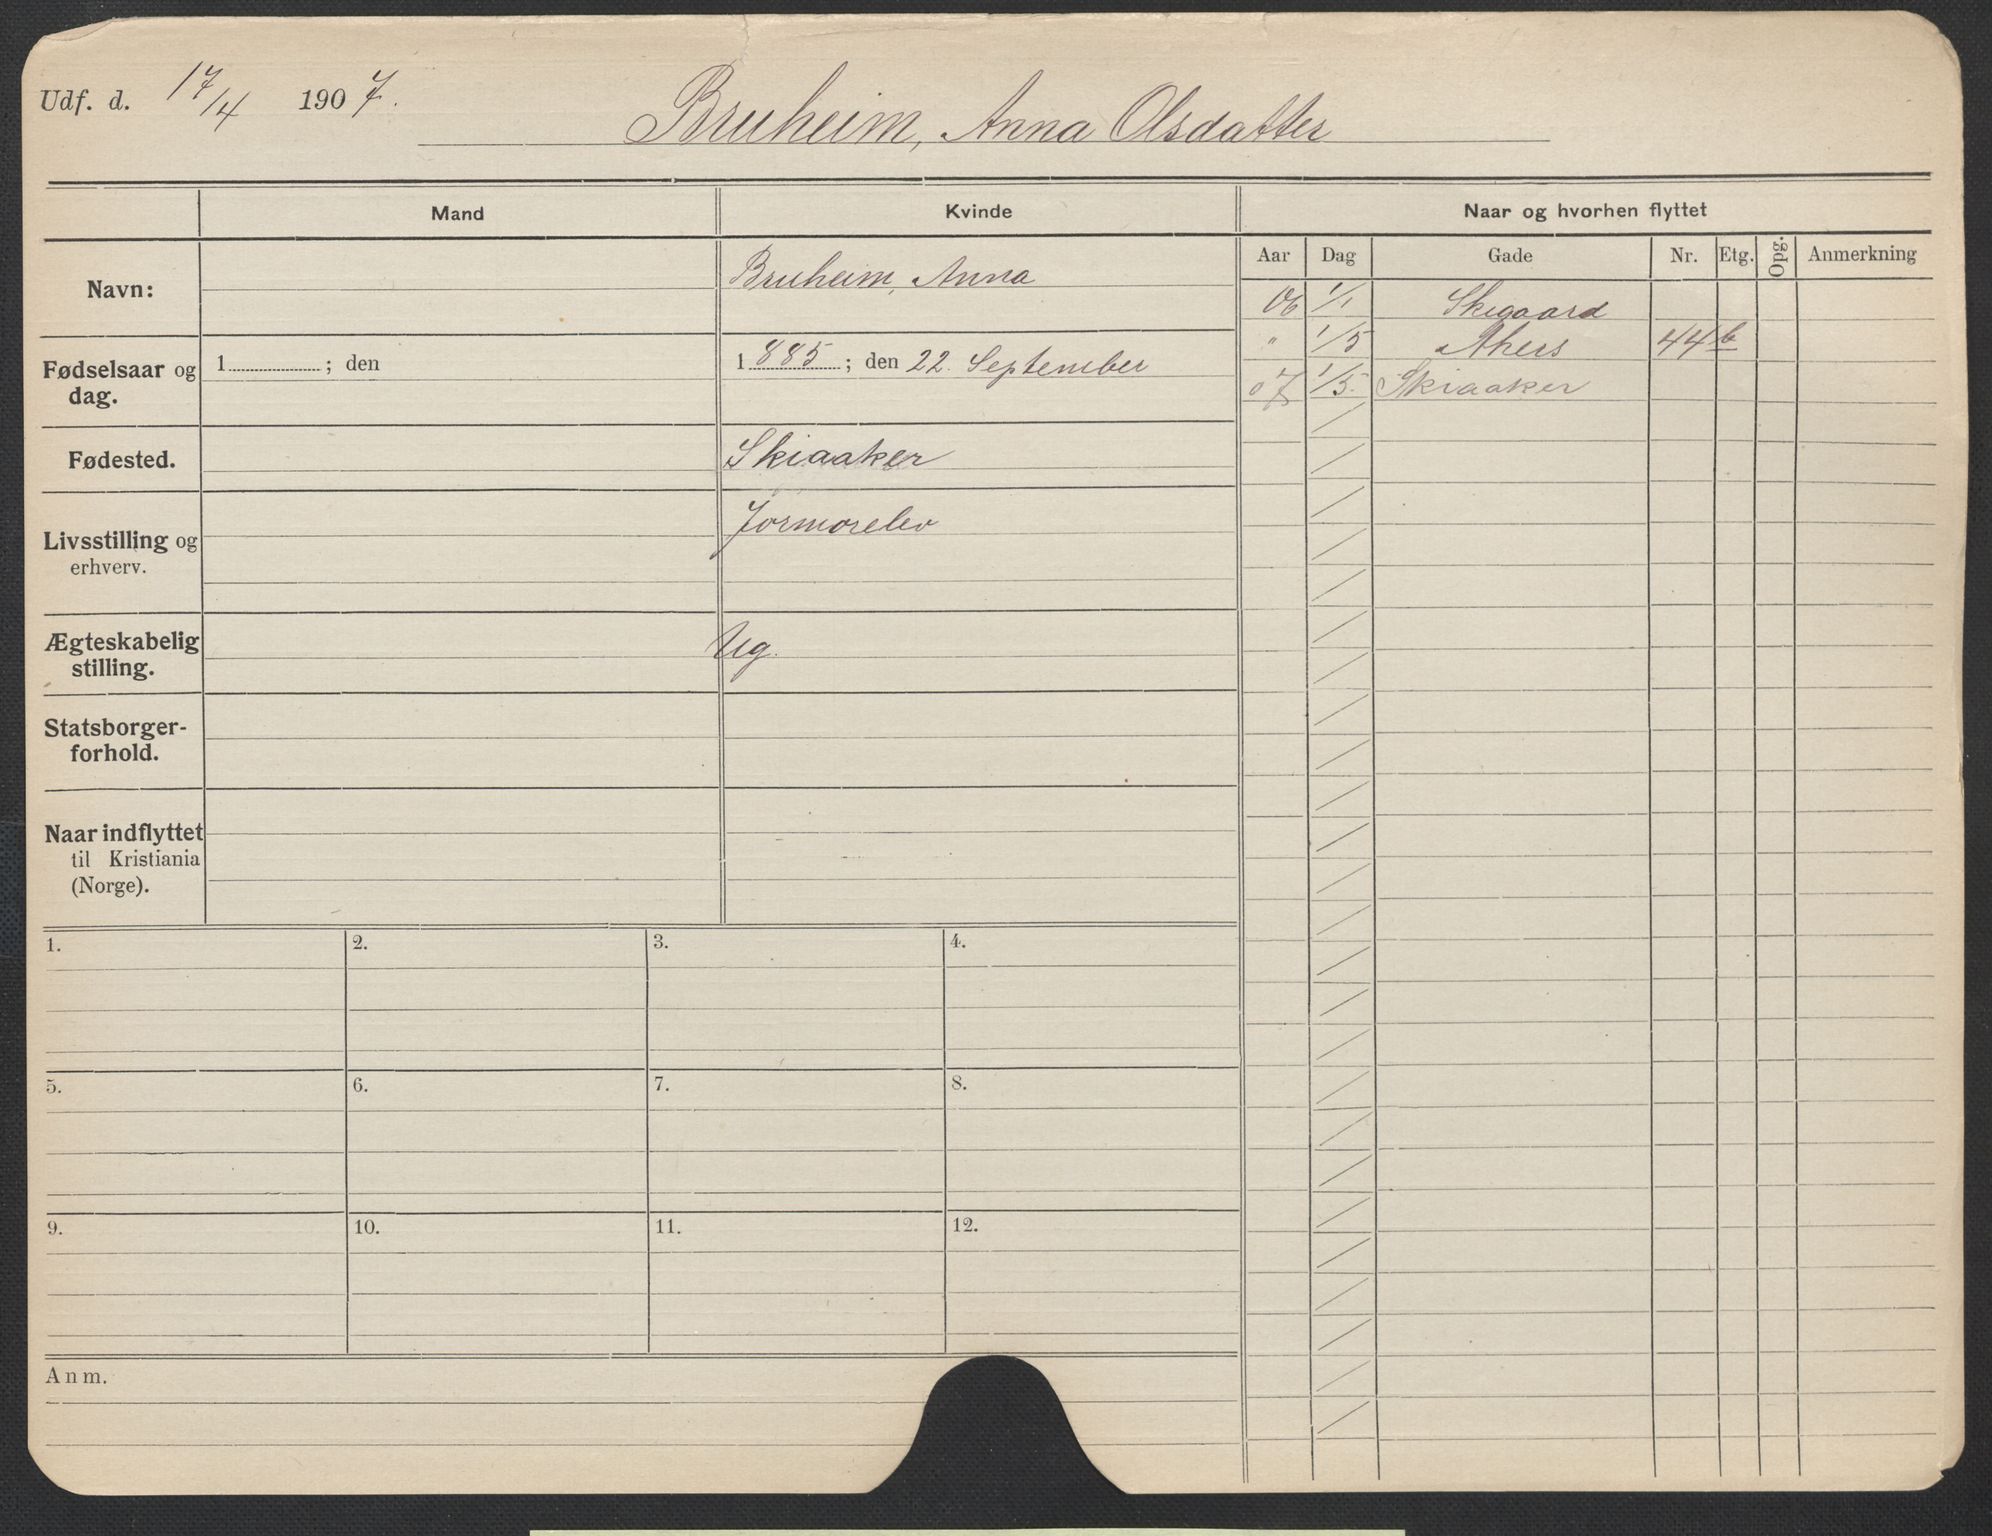 Udf. d. 17/4 1907.
Bruheim, Anna Olsdatter
Mand
Kvinde
Naar og hvorhen flyttet
Aar Dag Gade Nr. Etg. Opg. Anmerkning
06 1/1 Skigaard
" 1/5 Akers 44 b
07 1/5 Skiaaker
Navn: Bruheim, Anna
Fødselsaar og dag. 1 ; den 1885 ; den 22. September
Fødested. Skiaaker
Livsstilling og erhverv. Jormorelev
Ægteskabelig stilling. Ug.
Statsborger-
forhold.
Naar indflyttet
til Kristiania
(Norge).
1. 2. 3. 4.
5. 6. 7. 8.
9. 10. 11. 12.
Anm.